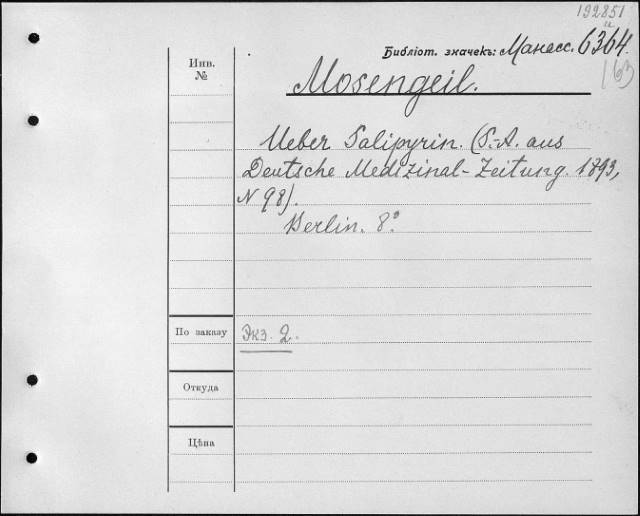 192851
и
Библіот. значекъ: Манасс. 6364.
163
Инв.
№
Mosengeil.
Ueber Salipyrin. (S.-A. aus
Deutsche Medizinal-Zeitung. 1893,
N 98).
Berlin. 8°.
По заказу
Экз. 2.
Откуда
Цѣна